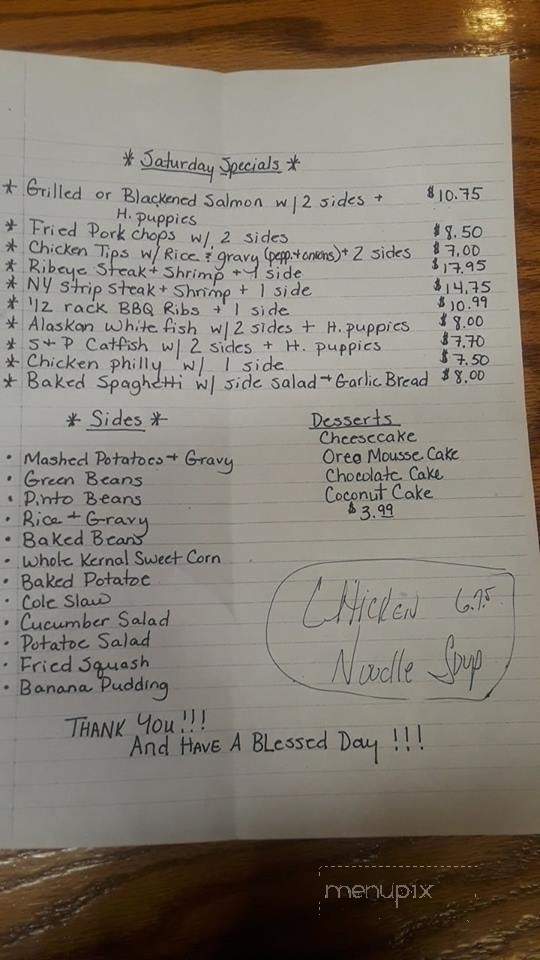 * Saturday Specials *
* Grilled or Blackened Salmon w/2 sides + $10.75
H. puppies
* Fried Pork chops w/ 2 sides $8.50
* Chicken Tips w/ Rice & gravy (pepp.+onions)+ 2 sides $7.00
* Ribeye Steak + Shrimp + 1 side $17.95
* NY Strip Steak + Shrimp + 1 side $14.75
* 1/2 rack BBQ Ribs + 1 side $10.99
* Alaskan White fish w/2 sides + H. puppies $8.00
* S+P Catfish w/ 2 sides + H. puppies $7.70
* Chicken philly w/ 1 side $7.50
* Baked Spaghetti w/ side salad + Garlic Bread $8.00
* Sides *
• Mashed Potatoes + Gravy
• Green Beans
• Pinto Beans
• Rice + Gravy
• Baked Beans
• Whole Kernal Sweet Corn
• Baked Potatoe
• Cole Slaw
• Cucumber Salad
• Potatoe Salad
• Fried Squash
• Banana Pudding
Desserts
Cheesecake
Oreo Mousse Cake
Chocolate Cake
Coconut Cake
$3.99
Chicken 6.75
Noodle Soup
THANK You!!!
And HAVE A BLessed Day !!!
menupix